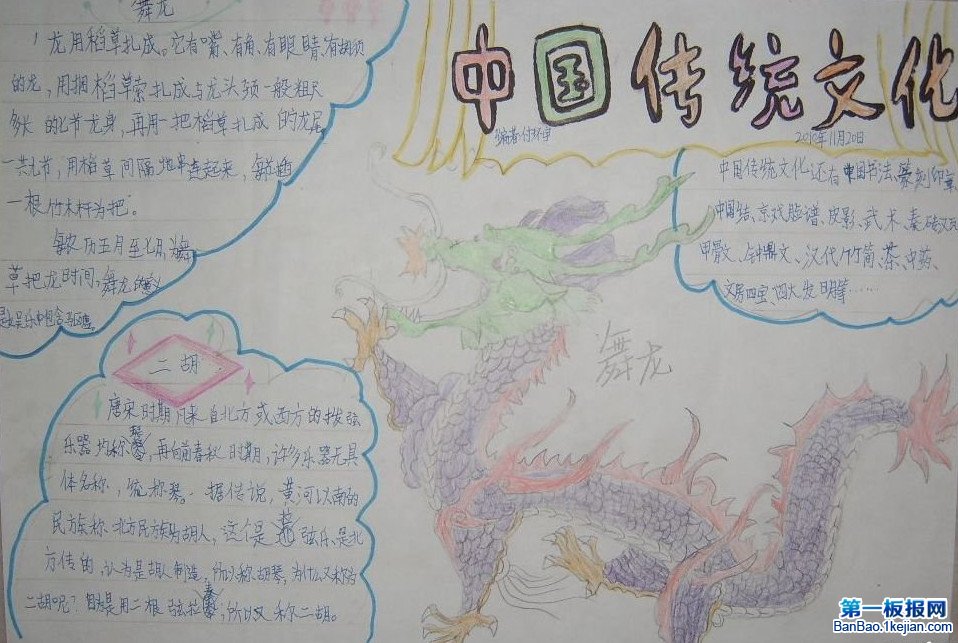 舞龙
龙用稻草扎成。它有嘴、有角、有眼睛、有胡须
的龙,用捆稻草索扎成与龙头颈一般粗尺
多长的七节龙身,再用一把稻草扎成的龙尾
一共九节,用稻草间隔地串连起来,每通
一根竹木杆为把。
每农历五月至七月,舞
草把龙时间,舞龙的
中国传统文化
编著:付
2010年11月20日
中国传统文化还有中国书法、篆刻印章、
中国结、京戏脸谱、皮影、武术、秦砖汉瓦
甲骨文、钟鼎文、汉代竹简、茶、中药、
文房四宝、四大发明等……
舞龙
二胡
唐宋时期凡来自北方或西方的拨弦
乐器均称琴,再向前春秋时期,许多乐器无具
体名称,统称琴。据传说,黄河以南的
民族称北方民族为胡人,这个是弦乐是北
方传的,认为是胡人制造,所以称胡琴,为什么又称为
二胡呢?因是用二根弦拉奏,所以又称二胡。
第一板报网
BanBao.1kejian.com